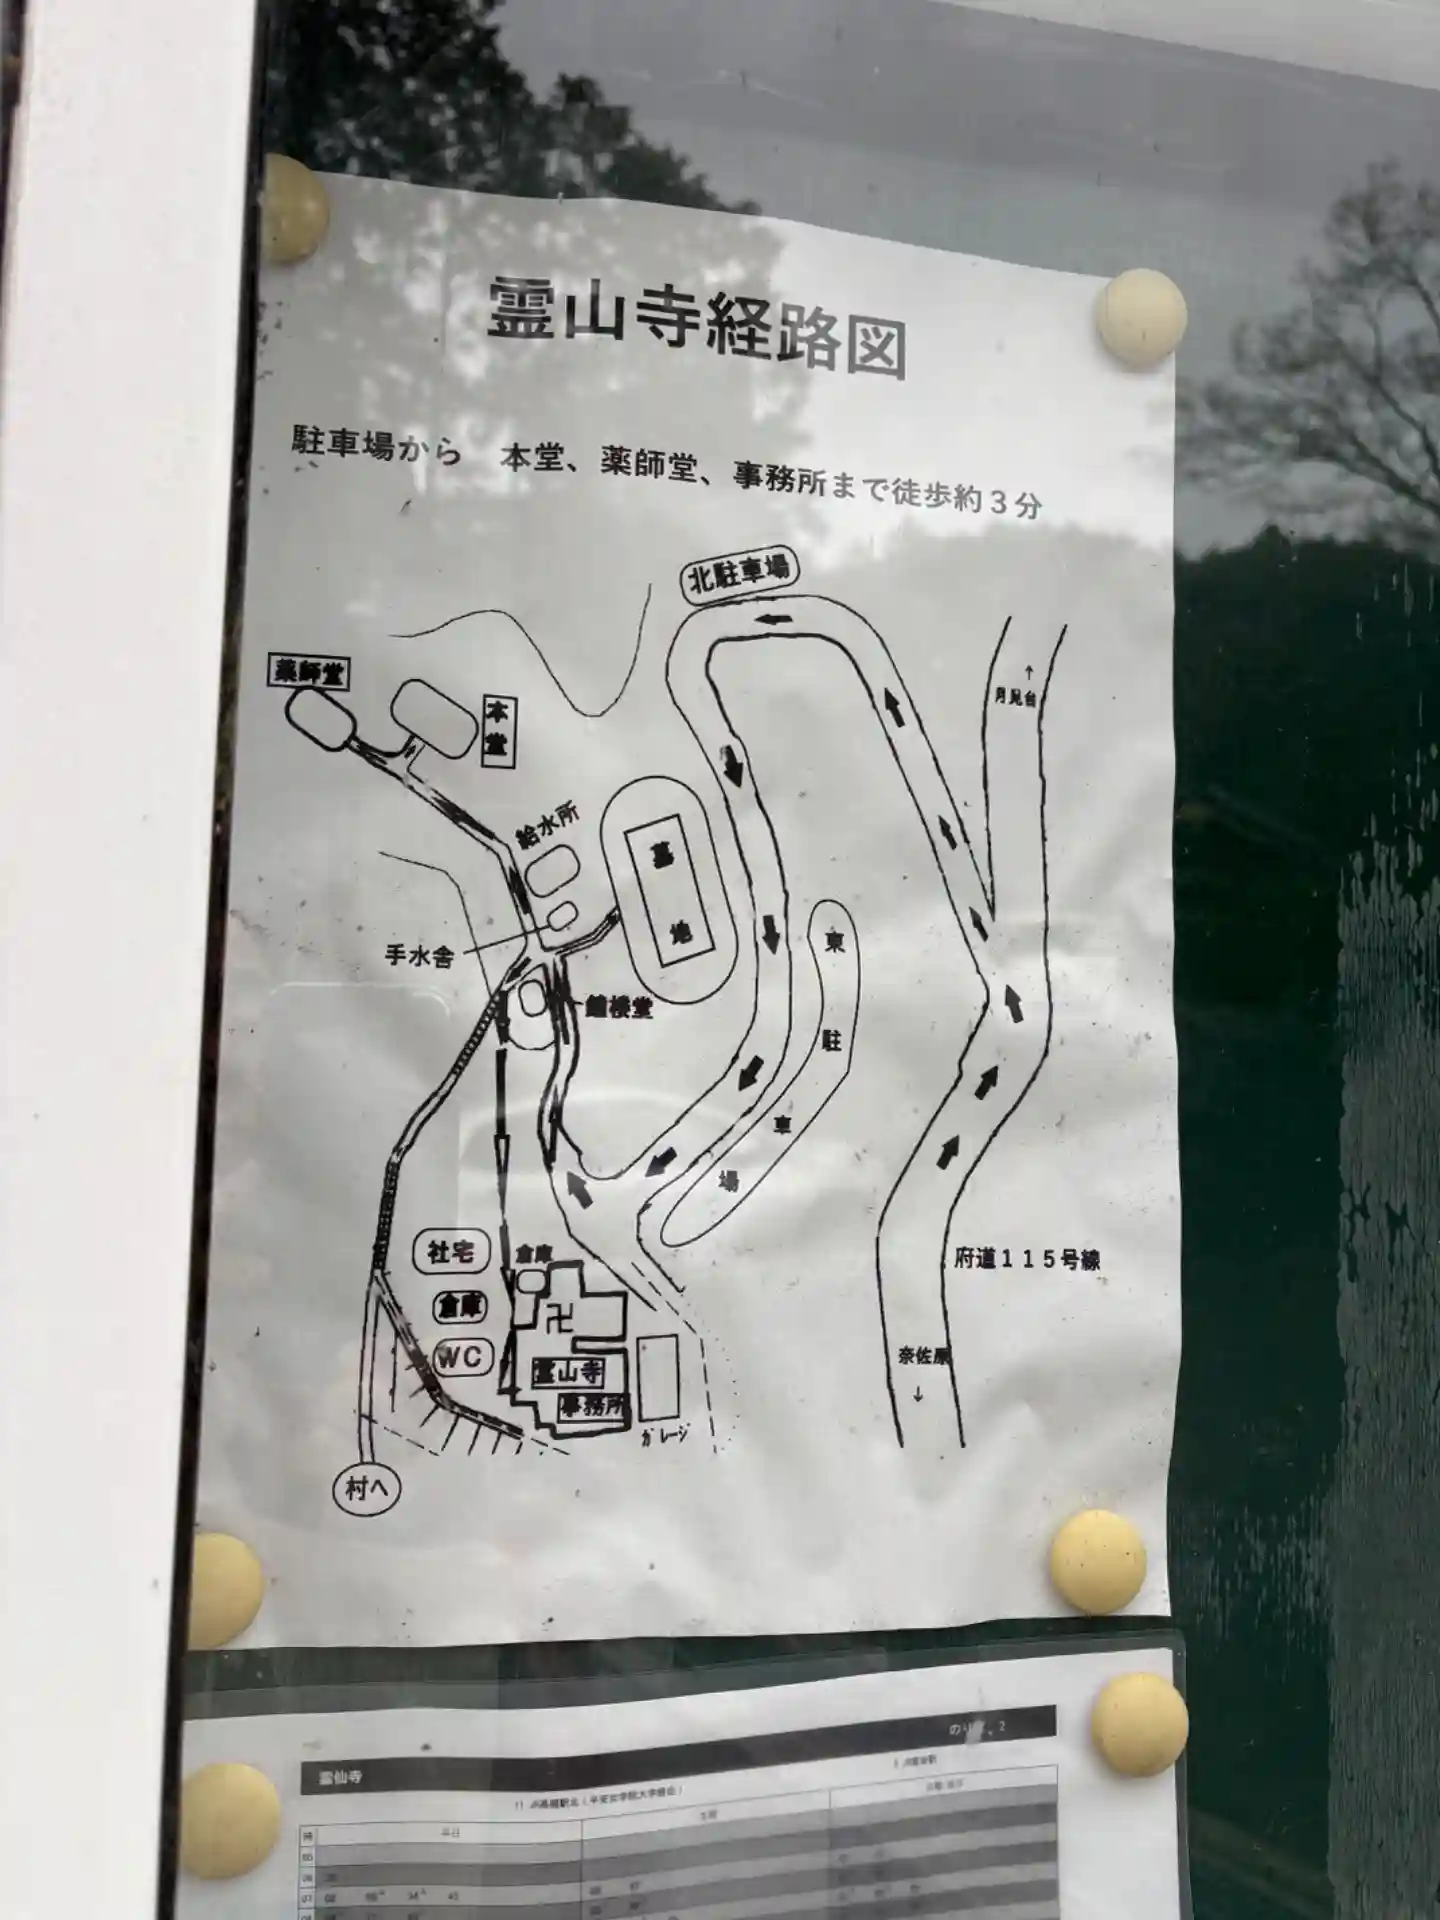 霊山寺経路図
駐車場から 本堂、薬師堂、事務所まで徒歩約3分
北駐車場
薬師堂
本堂
↑
月見台
給水所
墓地
手水舎
鐘楼堂
東駐車場
社宅
倉庫
倉庫
WC
卍
霊山寺
事務所
ガレージ
府道115号線
奈佐原
↓
村へ
霊仙寺
平日